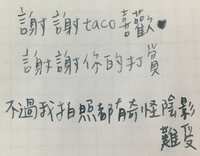 謝謝taco喜歡♥
謝謝你的打賞
不過我拍照都有奇怪陰影
難受